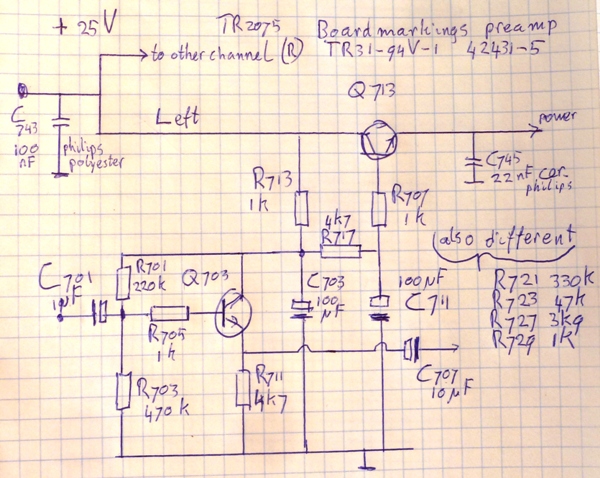 + 25V
TR2075
Board markings preamp
TR31-94V-1 42431-5
to other channel (R)
Q713
C743
100 nF
philips polyester
Left
power
C745
22nF cer.
philips
R713
1k
R707
1k
4k7
R717
(also different)
R721 330k
R723 47k
R727 3k9
R729 1k
C701
1µF
R701
220k
Q703
C703
100 µF
100µF
C711
R705
1k
R703
470k
R711
4k7
C707
10µF